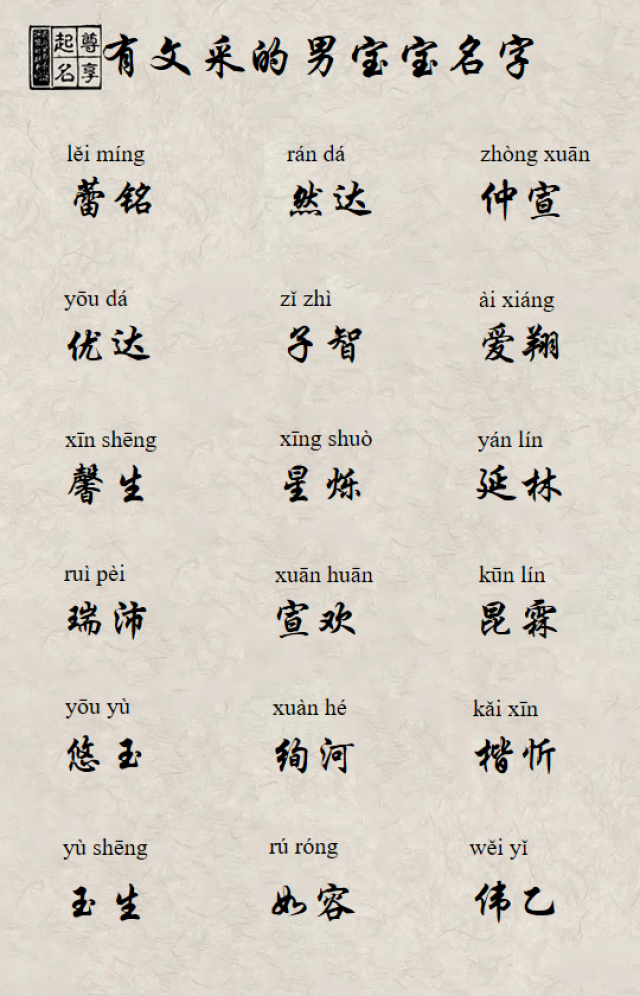 尊享
起名
有文采的男宝宝名字
lěi míng rán dá zhòng xuān
蕾铭 然达 仲宣
yōu dá zǐ zhì ài xiáng
优达 子智 爱翔
xīn shēng xīng shuò yán lín
馨生 星烁 延林
ruì pèi xuān huān kūn lín
瑞沛 宣欢 昆霖
yōu yù xuàn hé kǎi xīn
悠玉 绚河 楷忻
yù shēng rú róng wěi yǐ
玉生 如容 伟乙